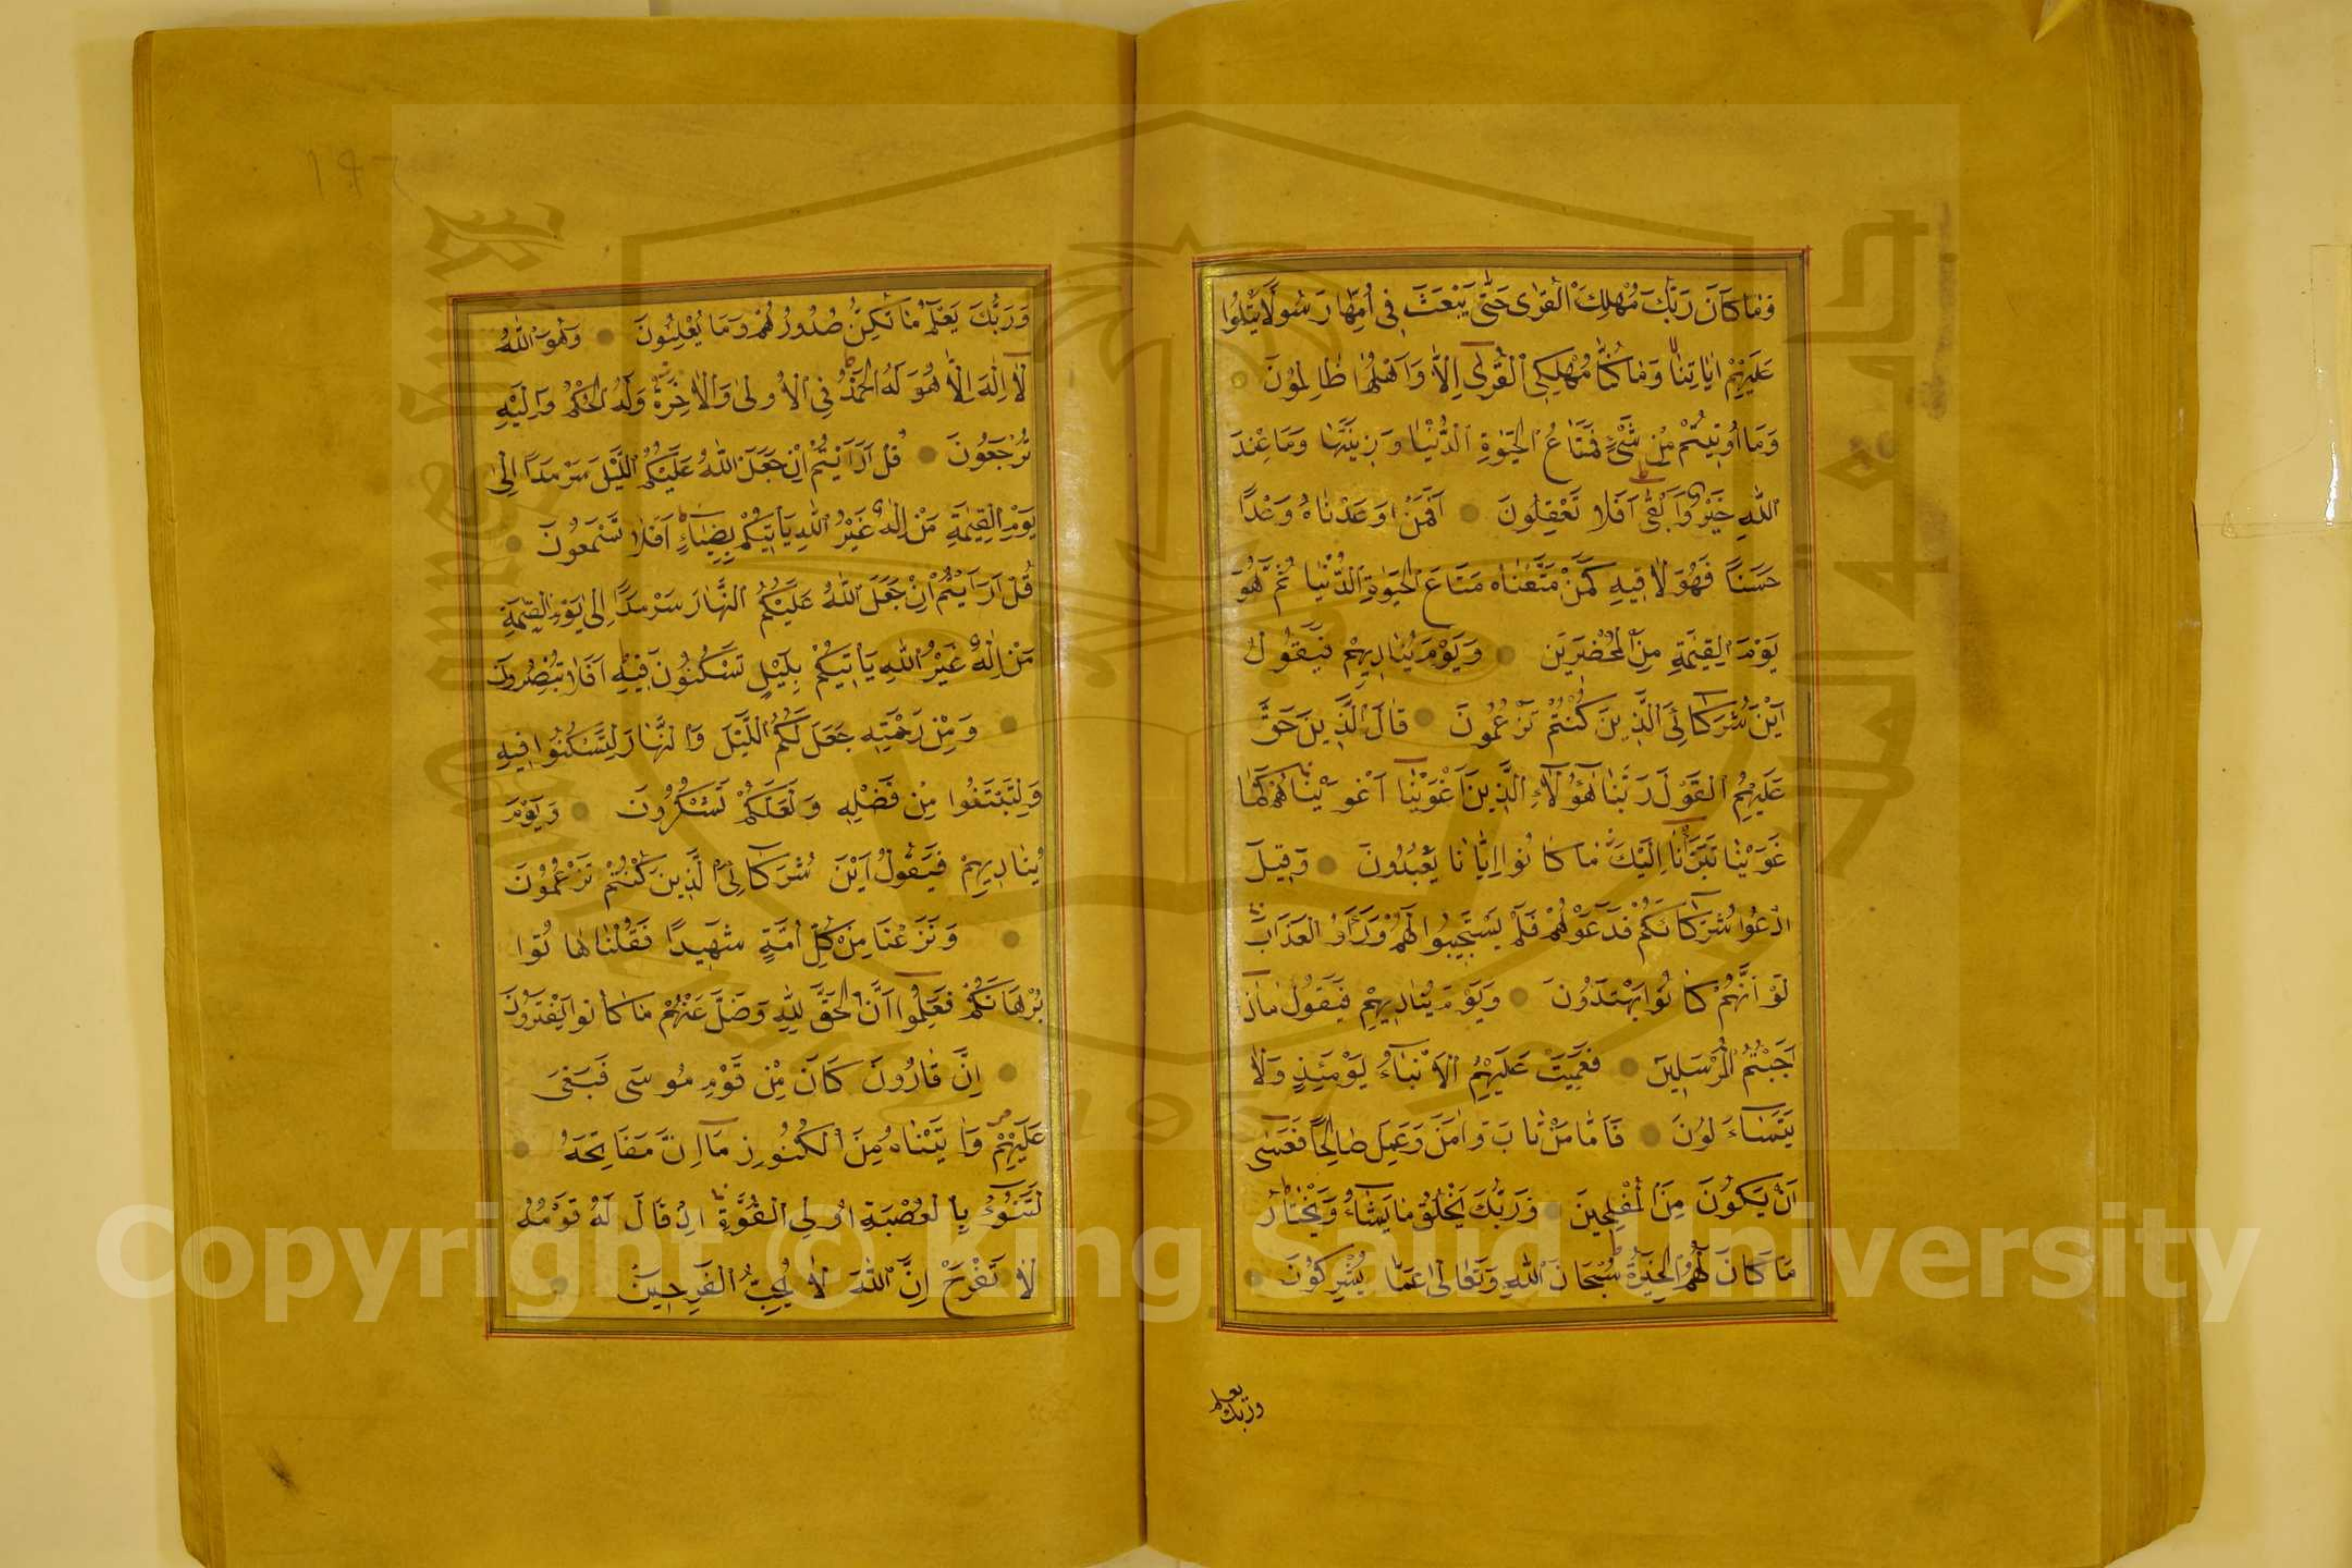 وَمَا كَانَ رَبُّكَ مُهْلِكَ الْقُرٰى حَتّٰى يَبْعَثَ فِي اُمِّهَا رَسُولًا يَتْلُوا
عَلَيْهِمْ اٰيَاتِنَا وَمَا كُنَّا مُهْلِكِي الْقُرٰى اِلَّا وَاَهْلُهَا ظَالِمُونَ
وَمَا اُوتِيتُمْ مِنْ شَيْءٍ فَمَتَاعُ الْحَيٰوةِ الدُّنْيَا وَزِينَتُهَا وَمَا عِنْدَ
اللّٰهِ خَيْرٌ وَاَبْقٰى اَفَلَا تَعْقِلُونَ اَفَمَنْ وَعَدْنَاهُ وَعْدًا
حَسَنًا فَهُوَ لَاقِيهِ كَمَنْ مَتَّعْنَاهُ مَتَاعَ الْحَيٰوةِ الدُّنْيَا ثُمَّ هُوَ
يَوْمَ الْقِيٰمَةِ مِنَ الْمُحْضَرِينَ وَيَوْمَ يُنَادِيهِمْ فَيَقُولُ
اَيْنَ شُرَكَائِيَ الَّذِينَ كُنْتُمْ تَزْعُمُونَ قَالَ الَّذِينَ حَقَّ
عَلَيْهِمُ الْقَوْلُ رَبَّنَا هٰؤُلَاءِ الَّذِينَ اَغْوَيْنَا اَغْوَيْنَاهُمْ كَمَا
غَوَيْنَا تَبَرَّأْنَا اِلَيْكَ مَا كَانُوا اِيَّانَا يَعْبُدُونَ وَقِيلَ
ادْعُوا شُرَكَاءَكُمْ فَدَعَوْهُمْ فَلَمْ يَسْتَجِيبُوا لَهُمْ وَرَاَوُا الْعَذَابَ
لَوْ اَنَّهُمْ كَانُوا يَهْتَدُونَ وَيَوْمَ يُنَادِيهِمْ فَيَقُولُ مَاذَا
اَجَبْتُمُ الْمُرْسَلِينَ فَعَمِيَتْ عَلَيْهِمُ الْاَنْبَاءُ يَوْمَئِذٍ فَهُمْ لَا
يَتَسَاءَلُونَ فَاَمَّا مَنْ تَابَ وَاٰمَنَ وَعَمِلَ صَالِحًا فَعَسٰى
اَنْ يَكُونَ مِنَ الْمُفْلِحِينَ وَرَبُّكَ يَخْلُقُ مَا يَشَاءُ وَيَخْتَارُ
مَا كَانَ لَهُمُ الْخِيَرَةُ سُبْحَانَ اللّٰهِ وَتَعَالٰى عَمَّا يُشْرِكُونَ
وربك يعلم
وَرَبُّكَ يَعْلَمُ مَا تُكِنُّ صُدُورُهُمْ وَمَا يُعْلِنُونَ وَهُوَ اللّٰهُ
لَا اِلٰهَ اِلَّا هُوَ لَهُ الْحَمْدُ فِي الْاُولٰى وَالْاٰخِرَةِ وَلَهُ الْحُكْمُ وَاِلَيْهِ
تُرْجَعُونَ قُلْ اَرَاَيْتُمْ اِنْ جَعَلَ اللّٰهُ عَلَيْكُمُ اللَّيْلَ سَرْمَدًا اِلٰى
يَوْمِ الْقِيٰمَةِ مَنْ اِلٰهٌ غَيْرُ اللّٰهِ يَأْتِيكُمْ بِضِيَاءٍ اَفَلَا تَسْمَعُونَ
قُلْ اَرَاَيْتُمْ اِنْ جَعَلَ اللّٰهُ عَلَيْكُمُ النَّهَارَ سَرْمَدًا اِلٰى يَوْمِ الْقِيٰمَةِ
مَنْ اِلٰهٌ غَيْرُ اللّٰهِ يَأْتِيكُمْ بِلَيْلٍ تَسْكُنُونَ فِيهِ اَفَلَا تُبْصِرُونَ
وَمِنْ رَحْمَتِهِ جَعَلَ لَكُمُ اللَّيْلَ وَالنَّهَارَ لِتَسْكُنُوا فِيهِ
وَلِتَبْتَغُوا مِنْ فَضْلِهِ وَلَعَلَّكُمْ تَشْكُرُونَ وَيَوْمَ
يُنَادِيهِمْ فَيَقُولُ اَيْنَ شُرَكَائِيَ الَّذِينَ كُنْتُمْ تَزْعُمُونَ
وَنَزَعْنَا مِنْ كُلِّ اُمَّةٍ شَهِيدًا فَقُلْنَا هَاتُوا
بُرْهَانَكُمْ فَعَلِمُوا اَنَّ الْحَقَّ لِلّٰهِ وَضَلَّ عَنْهُمْ مَا كَانُوا يَفْتَرُونَ
اِنَّ قَارُونَ كَانَ مِنْ قَوْمِ مُوسٰى فَبَغٰى
عَلَيْهِمْ وَاٰتَيْنَاهُ مِنَ الْكُنُوزِ مَا اِنَّ مَفَاتِحَهُ
لَتَنُوءُ بِالْعُصْبَةِ اُولِي الْقُوَّةِ اِذْ قَالَ لَهُ قَوْمُهُ
لَا تَفْرَحْ اِنَّ اللّٰهَ لَا يُحِبُّ الْفَرِحِينَ
Copyright © King Saud University